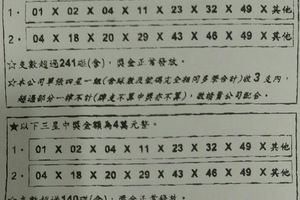 1. 01 X 02 X 04 X 11 X 23 X 32 X 49 X 其他
2. 04 X 18 X 20 X 29 X 33 X 46 X 49 X 其他
☆支數超過241碰(含),獎金正常發放。
☆本公司單張四星一組(含球數及號碼完全相同多筆合計)收3支內,
超過部分一律不計(牌支不算中獎亦不算),敬請貴公司配合。
★以下三星中獎金額為4萬元整。
1. 01 X 02 X 04 X 11 X 23 X 32 X 49 X 其他
2. 04 X 18 X 20 X 29 X 33 X 46 X 49 X 其他
☆支數超過140碰(含),獎金正常發放。